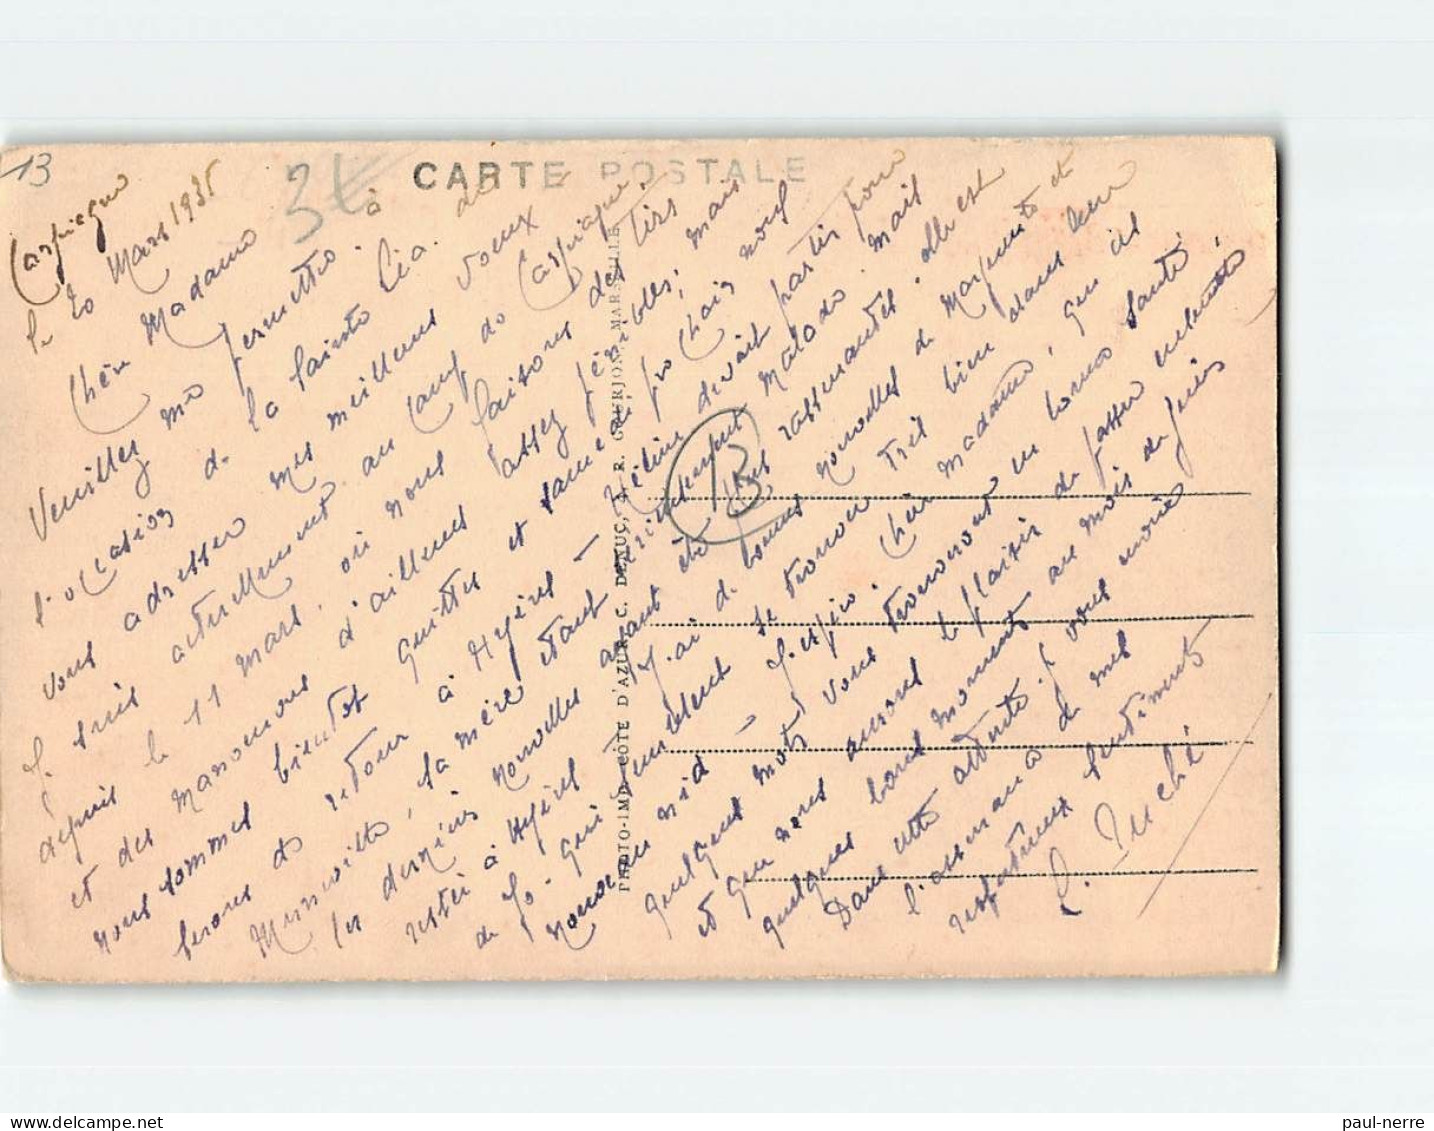 13
3€
CARTE POSTALE
Carpiagne
le 20 Mars 1935
Chère Madame
Veuillez me permettre à
l'occasion de la Sainte Léa de
vous adresser mes meilleurs voeux
Je suis actuellement au camp de Carpiagne
depuis le 11 mars, où nous faisons des tirs
et des manoeuvres d'ailleurs assez pénibles; mais
nous sommes bientôt quittes et samedi prochain nous
serons de retour à Hyères - devait partir pour
sa mère étant malade mais
les dernières nouvelles ayant été plus rassurantes, elle est
restée à Hyères. J'ai de bonnes nouvelles de Marguerite et
de Jo qui semblent se trouver très bien dans leur
nouveau nid - J'espère, chère Madame, que ces
quelques mots vous trouveront en bonne santé,
et que nous aurons le plaisir de passer ensemble
quelques bons moments au mois de juin
Dans cette attente je vous envoie
l'assurance de mes
respectueux sentiments
13
PHOTO-IMP. CÔTE D'AZUR C. DEAUC, R. GOURJON, MARSEILLE
paul-nerre